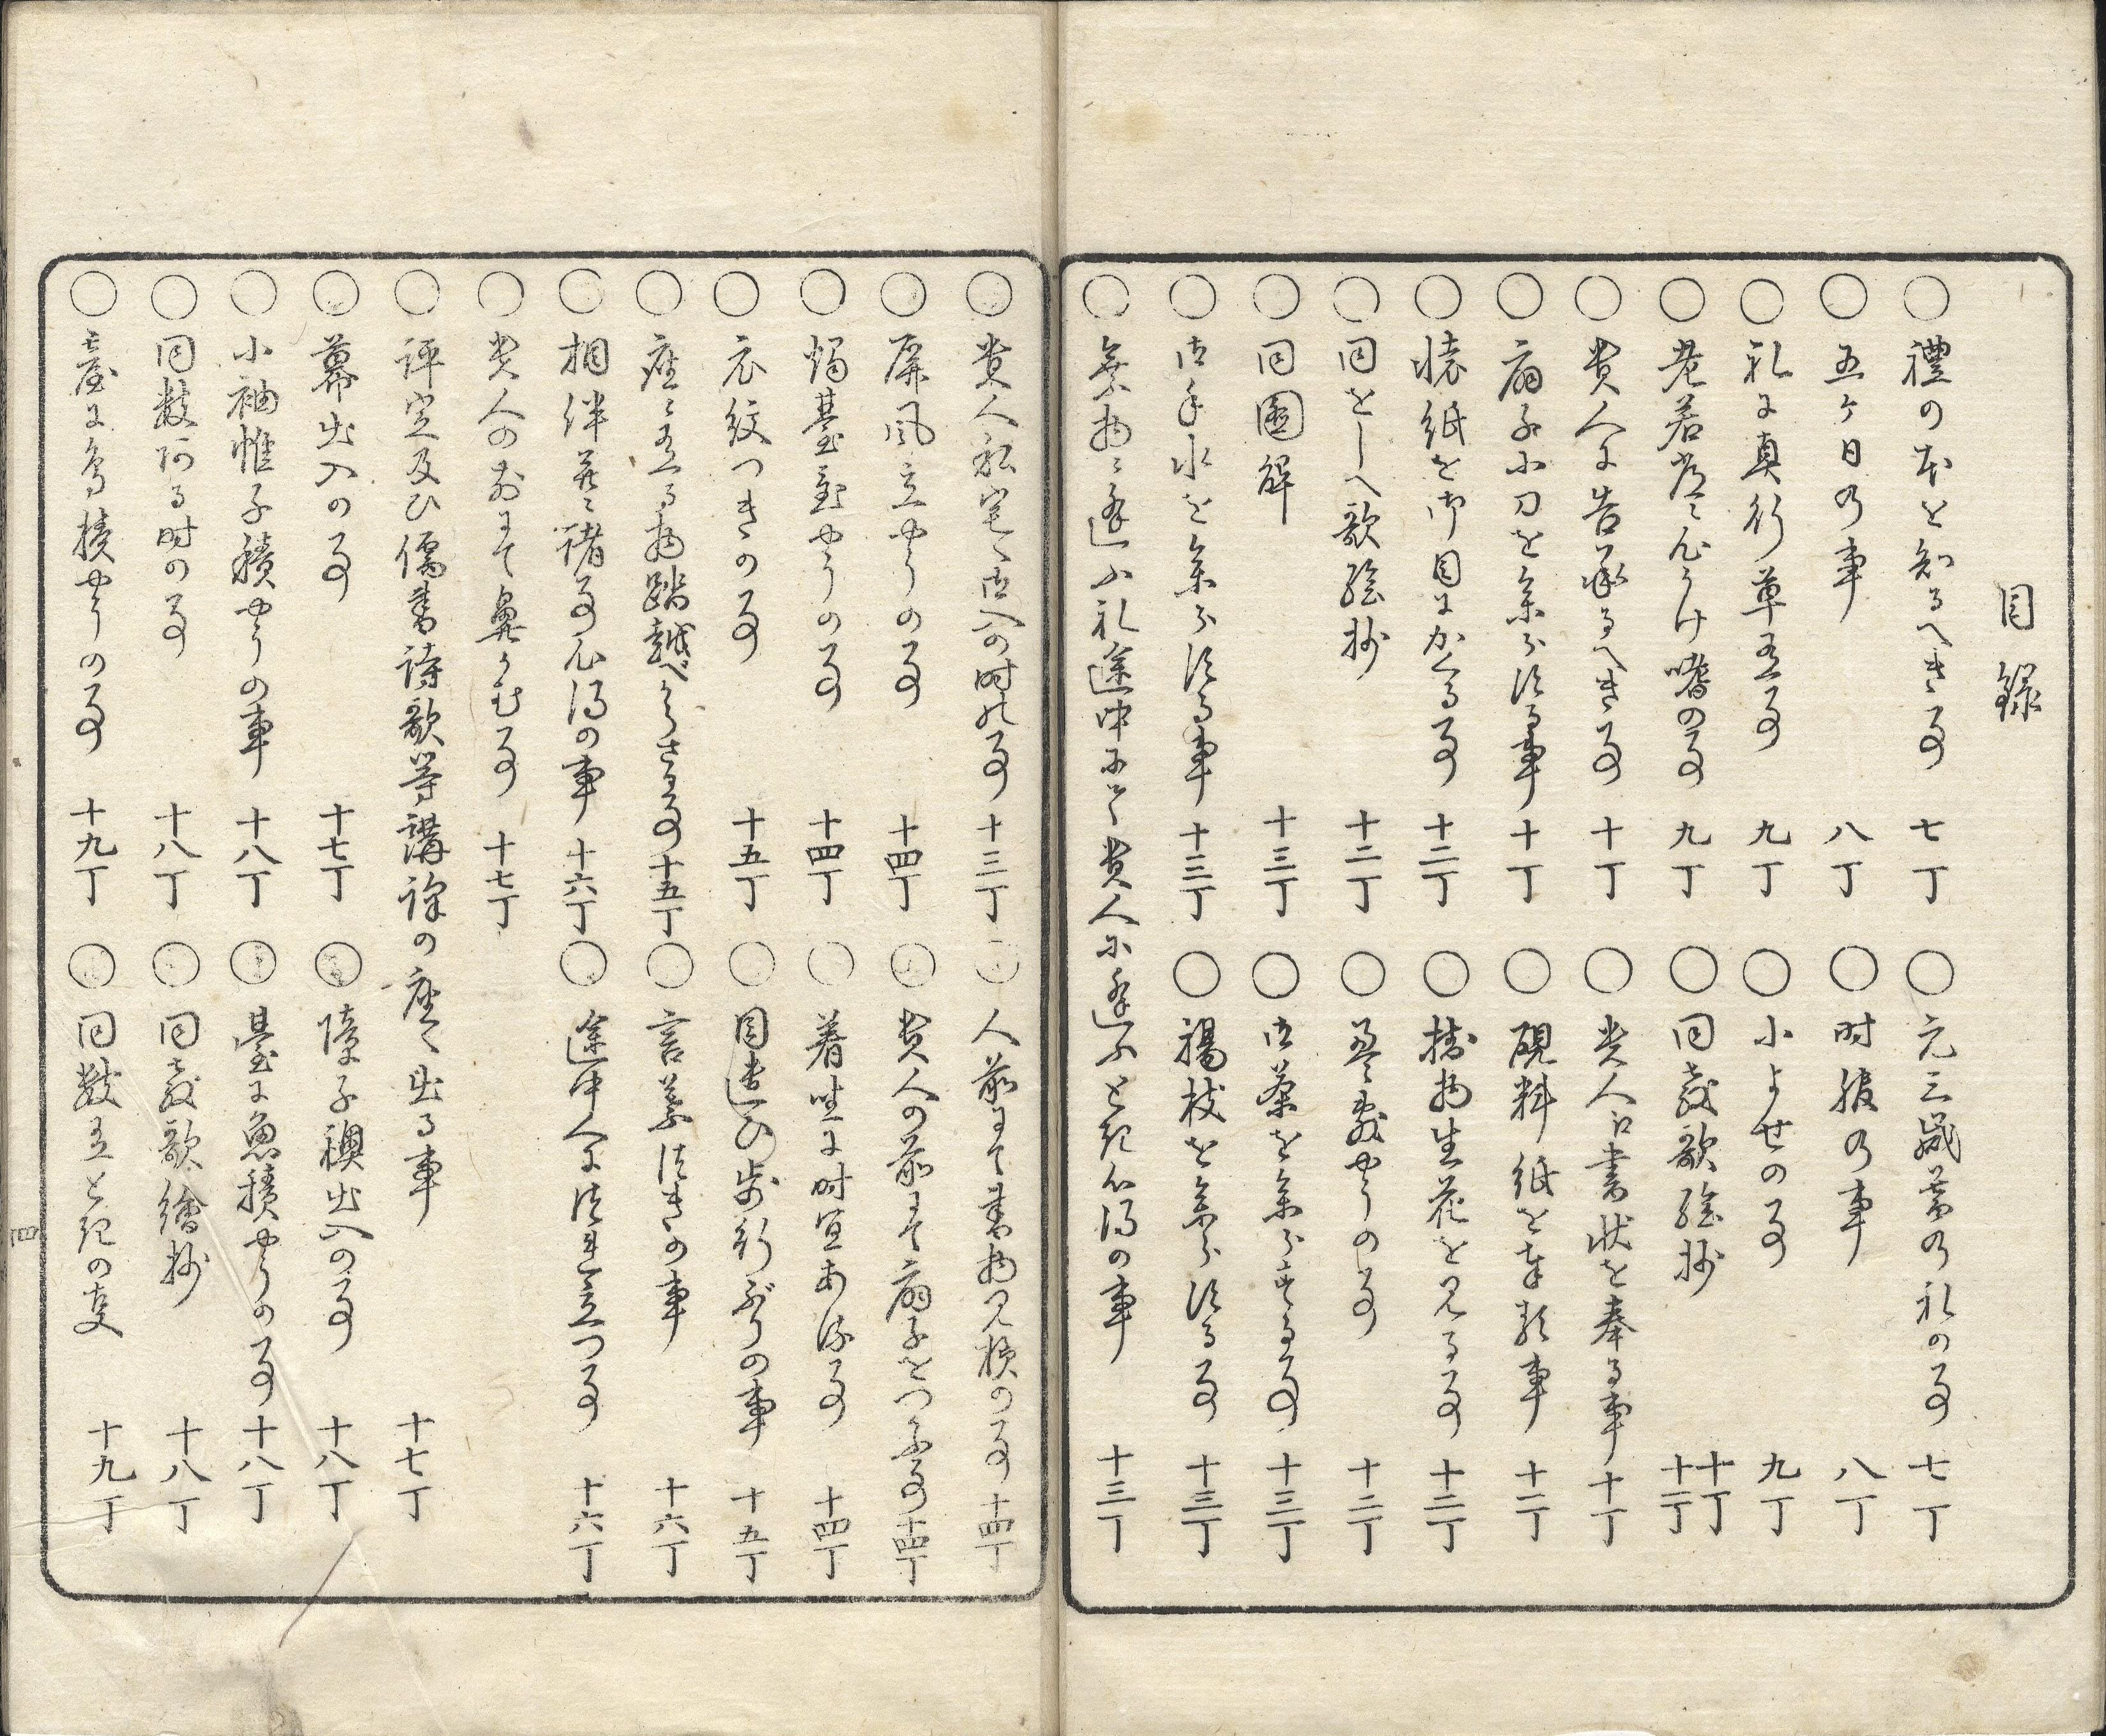 目録
○禮の本を知るへき事 七丁
○元三歳暮の礼の事 七丁
○五ケ日の事 八丁
○时服の事 八丁
○礼に真行草有事 九丁
○小よせの事 九丁
○老若常に心かけ嗜の事 九丁
○同教歌絵抄 十丁 十一丁
○貴人に告承るへき事 十丁
○貴人江書状を奉る事 十丁
○扇子小刀を参らする事 十丁
○硯料紙を奉る事 十二丁
○懐紙を御目にかくる事 十二丁
○掛物生花を見る事 十二丁
○同をしへ歌絵抄 十二丁
○盃台やうの事 十二丁
○同圖解 十三丁
○御茶を参らする事 十三丁
○御手水を参らする事 十三丁
○楊枝を参らする事 十三丁
○乗物に逢ふ礼途中にて貴人に逢ふとき心得の事 十三丁
○貴人私宅に御入の时の事 十三丁
○人前にて書物見様の事 十四丁
○屏風立やうの事 十四丁
○貴人の前にて扇子をつかふ事 十四丁
○燭臺置やうの事 十四丁
○着坐に时宜ある事 十四丁
○衣紋つきの事 十五丁
○目遣ひ歩行ぶりの事 十五丁
○座に有る物踏越べからさる事 十五丁
○言葉つきの事 十六丁
○相伴并に諸事心得の事 十六丁
○途中人につれ立つ事 十六丁
○貴人のまへにて鼻かむ事 十七丁
○評定及ひ儒書詩歌等講談の座に出る事 十七丁
○幕出入の事 十七丁
○障子襖出入の事 十八丁
○小袖帷子積やうの事 十八丁
○臺に魚積やうの事 十八丁
○同数ある时の事 十八丁
○同教歌繪抄 十八丁
○臺に鳥積やうの事 十九丁
○同数有ときの事 十九丁